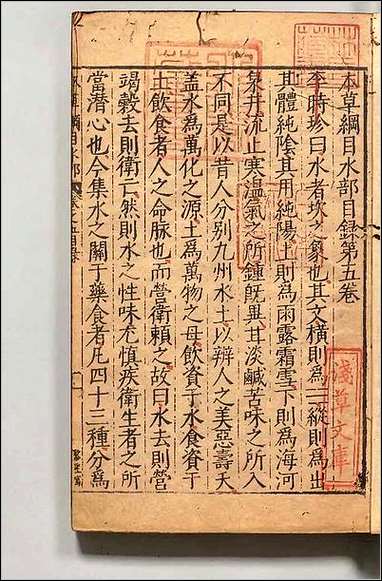 本草綱目水部目錄第五卷
李時珍曰水者坎之象也其文橫則為☵縱則為巛
其體純陰其用純陽上則為雨露霜雪下則為海河
泉井流止寒溫氣之所鍾既異甘淡鹹苦味之所入
不同是以昔人分別九州水土以辨人之美惡壽夭
盖水為萬化之源土為萬物之母飲資于水食資于
土飲食者人之命脉也而營衛賴之故曰水去則營
竭穀去則衛亡然則水之性味尤慎疾衛生者之所
當潛心也今集水之關于藥食者凡四十三種分為
淺草文庫